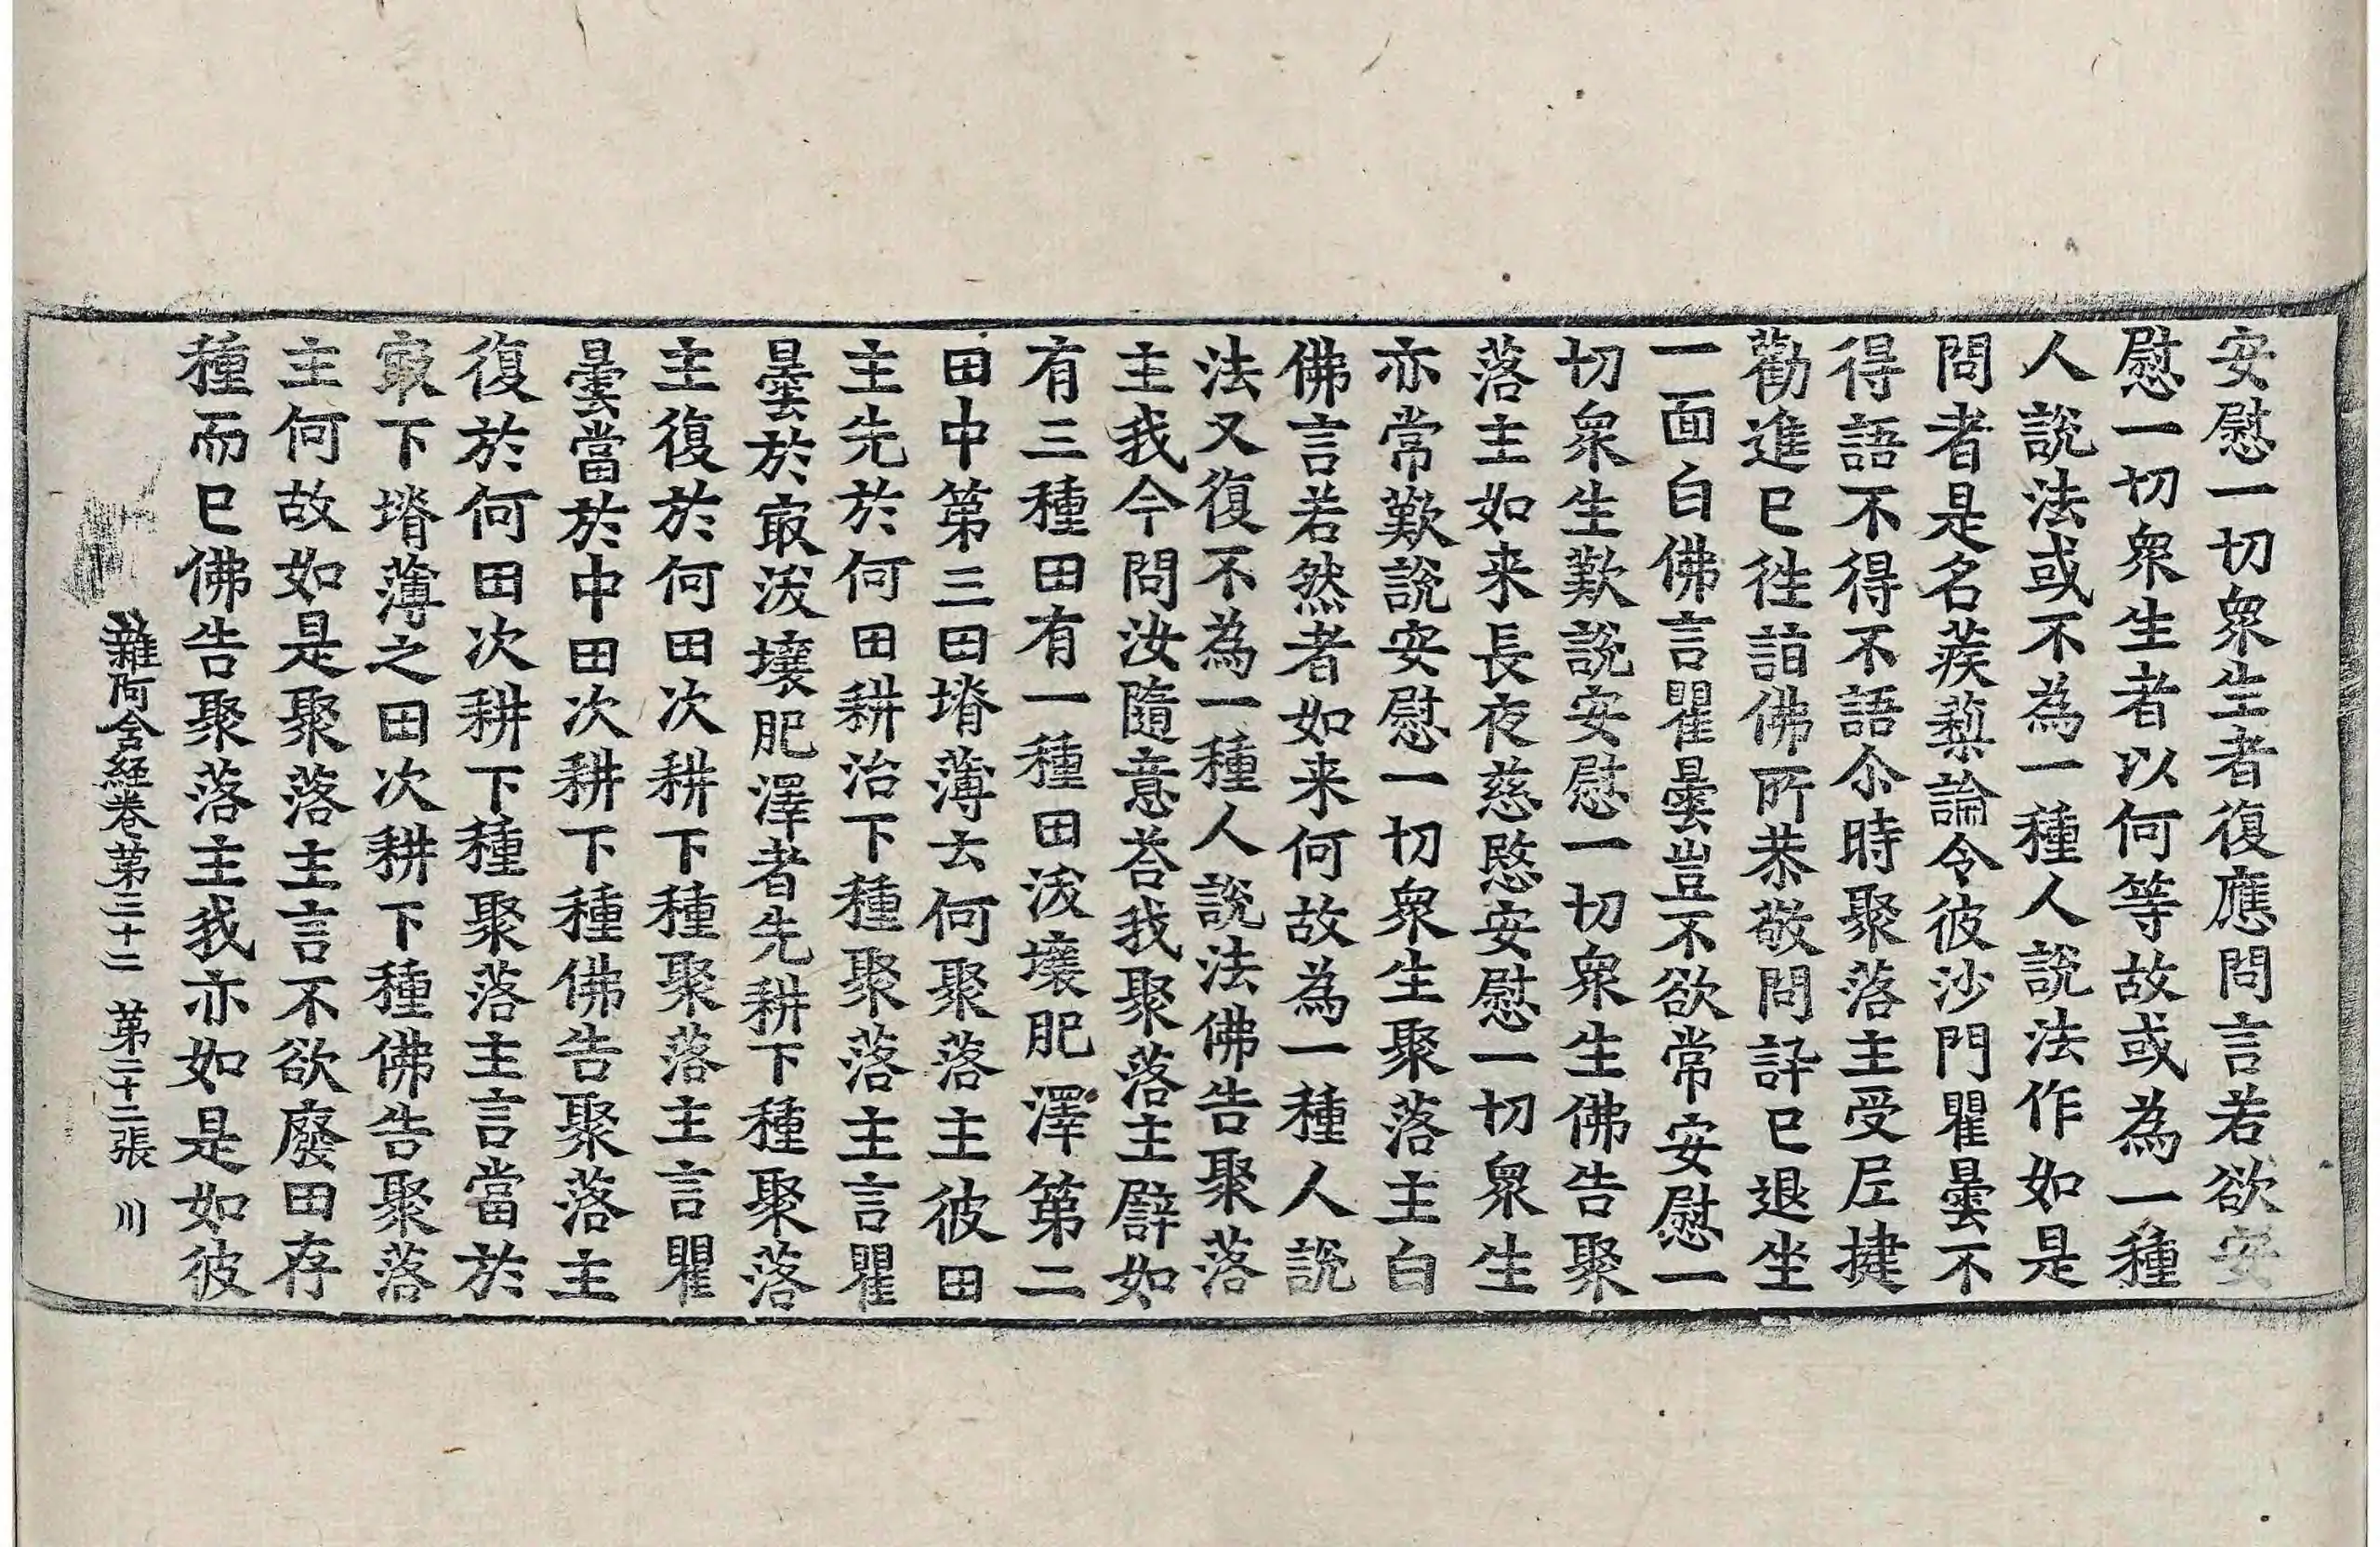 安慰一切衆生者復應問言若欲安
慰一切衆生者以何等故或為一種
人說法或不為一種人說法作如是
問者是名蒺蔾論令彼沙門瞿曇不
得語不得不語尒時聚落主受𡰱揵
勸進已徃詣佛所恭敬問訊已退坐
一面白佛言瞿曇豈不欲常安慰一
切衆生歎說安慰一切衆生佛告聚
落主如来長夜慈愍安慰一切衆生
亦常歎說安慰一切衆生聚落主白
佛言若然者如来何故為一種人說
法又復不為一種人說法佛告聚落
主我今問汝隨意荅我聚落主譬如
有三種田有一種田沃壤肥澤第二
田中第三田塉薄云何聚落主彼田
主先於何田耕治下種聚落主言瞿
曇於㝡沃壤肥澤者先耕下種聚落
主復於何田次耕下種聚落主言瞿
曇當於中田次耕下種佛告聚落主
復於何田次耕下種聚落主言當於
㝡下塉薄之田次耕下種佛告聚落
主何故如是聚落主言不欲廢田存
種而已佛告聚落主我亦如是如彼
雜阿含経卷第三十二 第二十二張 川